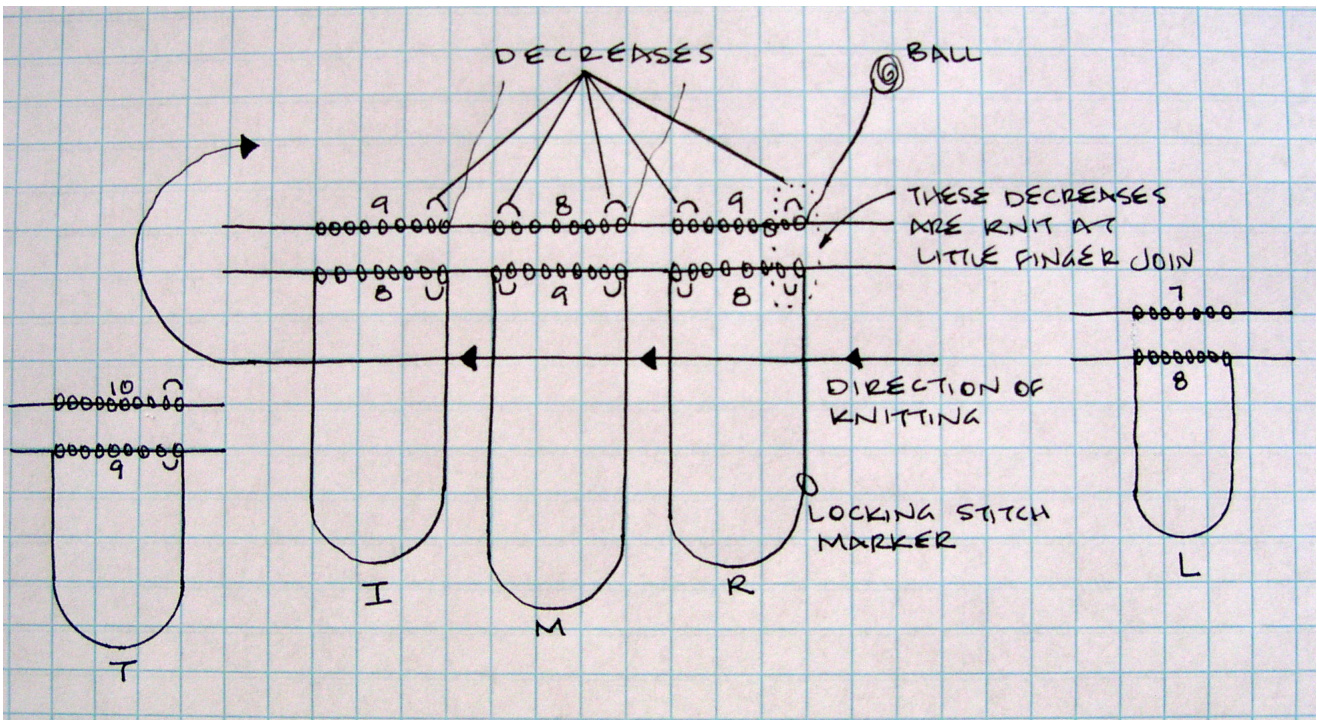 DECREASES
BALL
9 8 9
THESE DECREASES
ARE KNIT AT
LITTLE FINGER JOIN
8 9 8
7
8
DIRECTION OF
KNITTING
10
9
LOCKING STITCH
MARKER
I
M
R
L
T